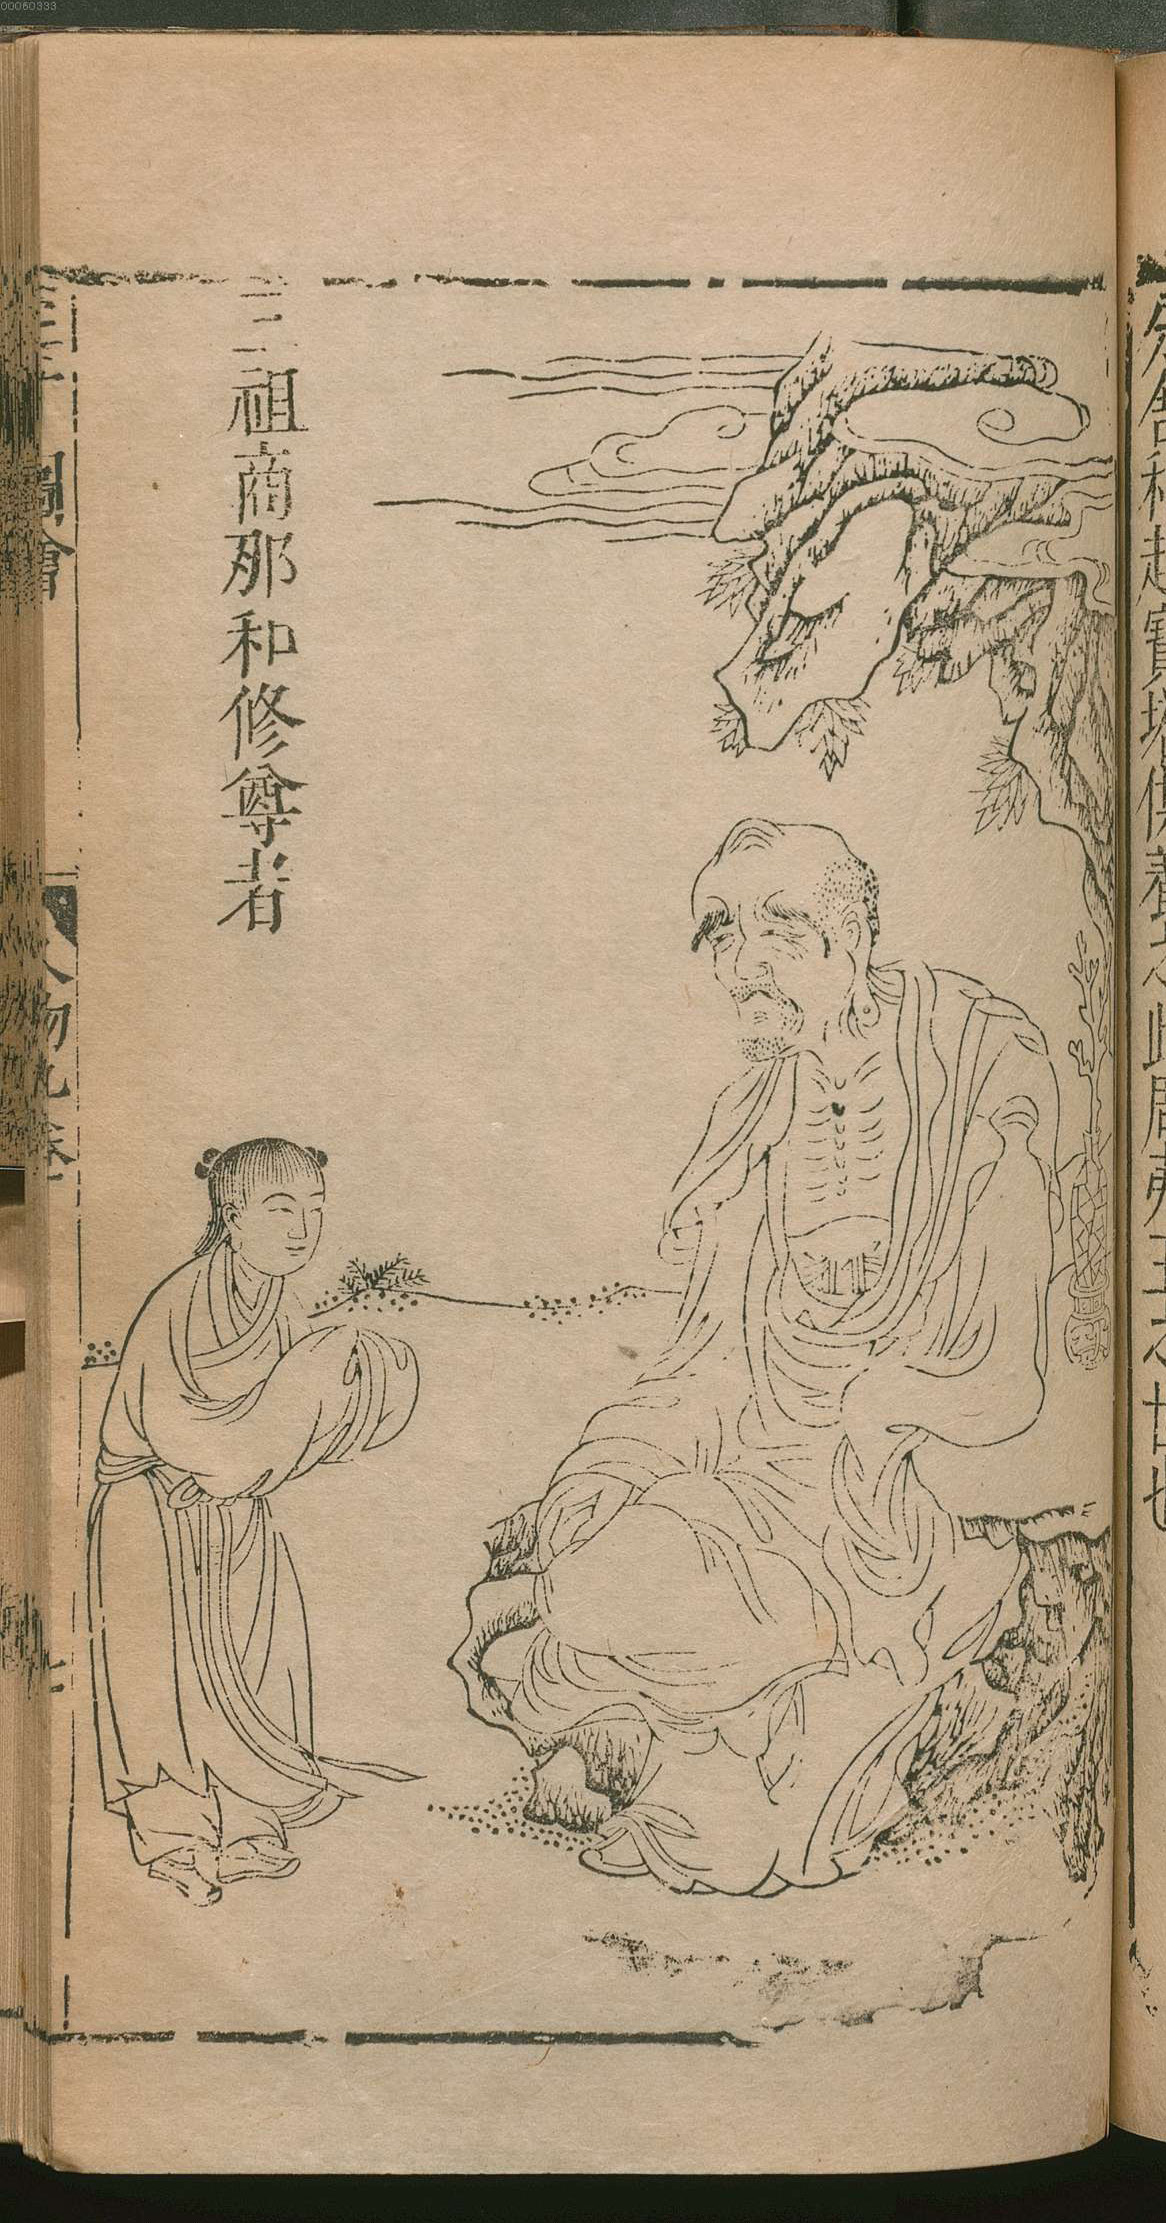 00060333
分舍利起寶塔供養之此周
王之世也
三祖商那和修尊者
圖會
人物九卷